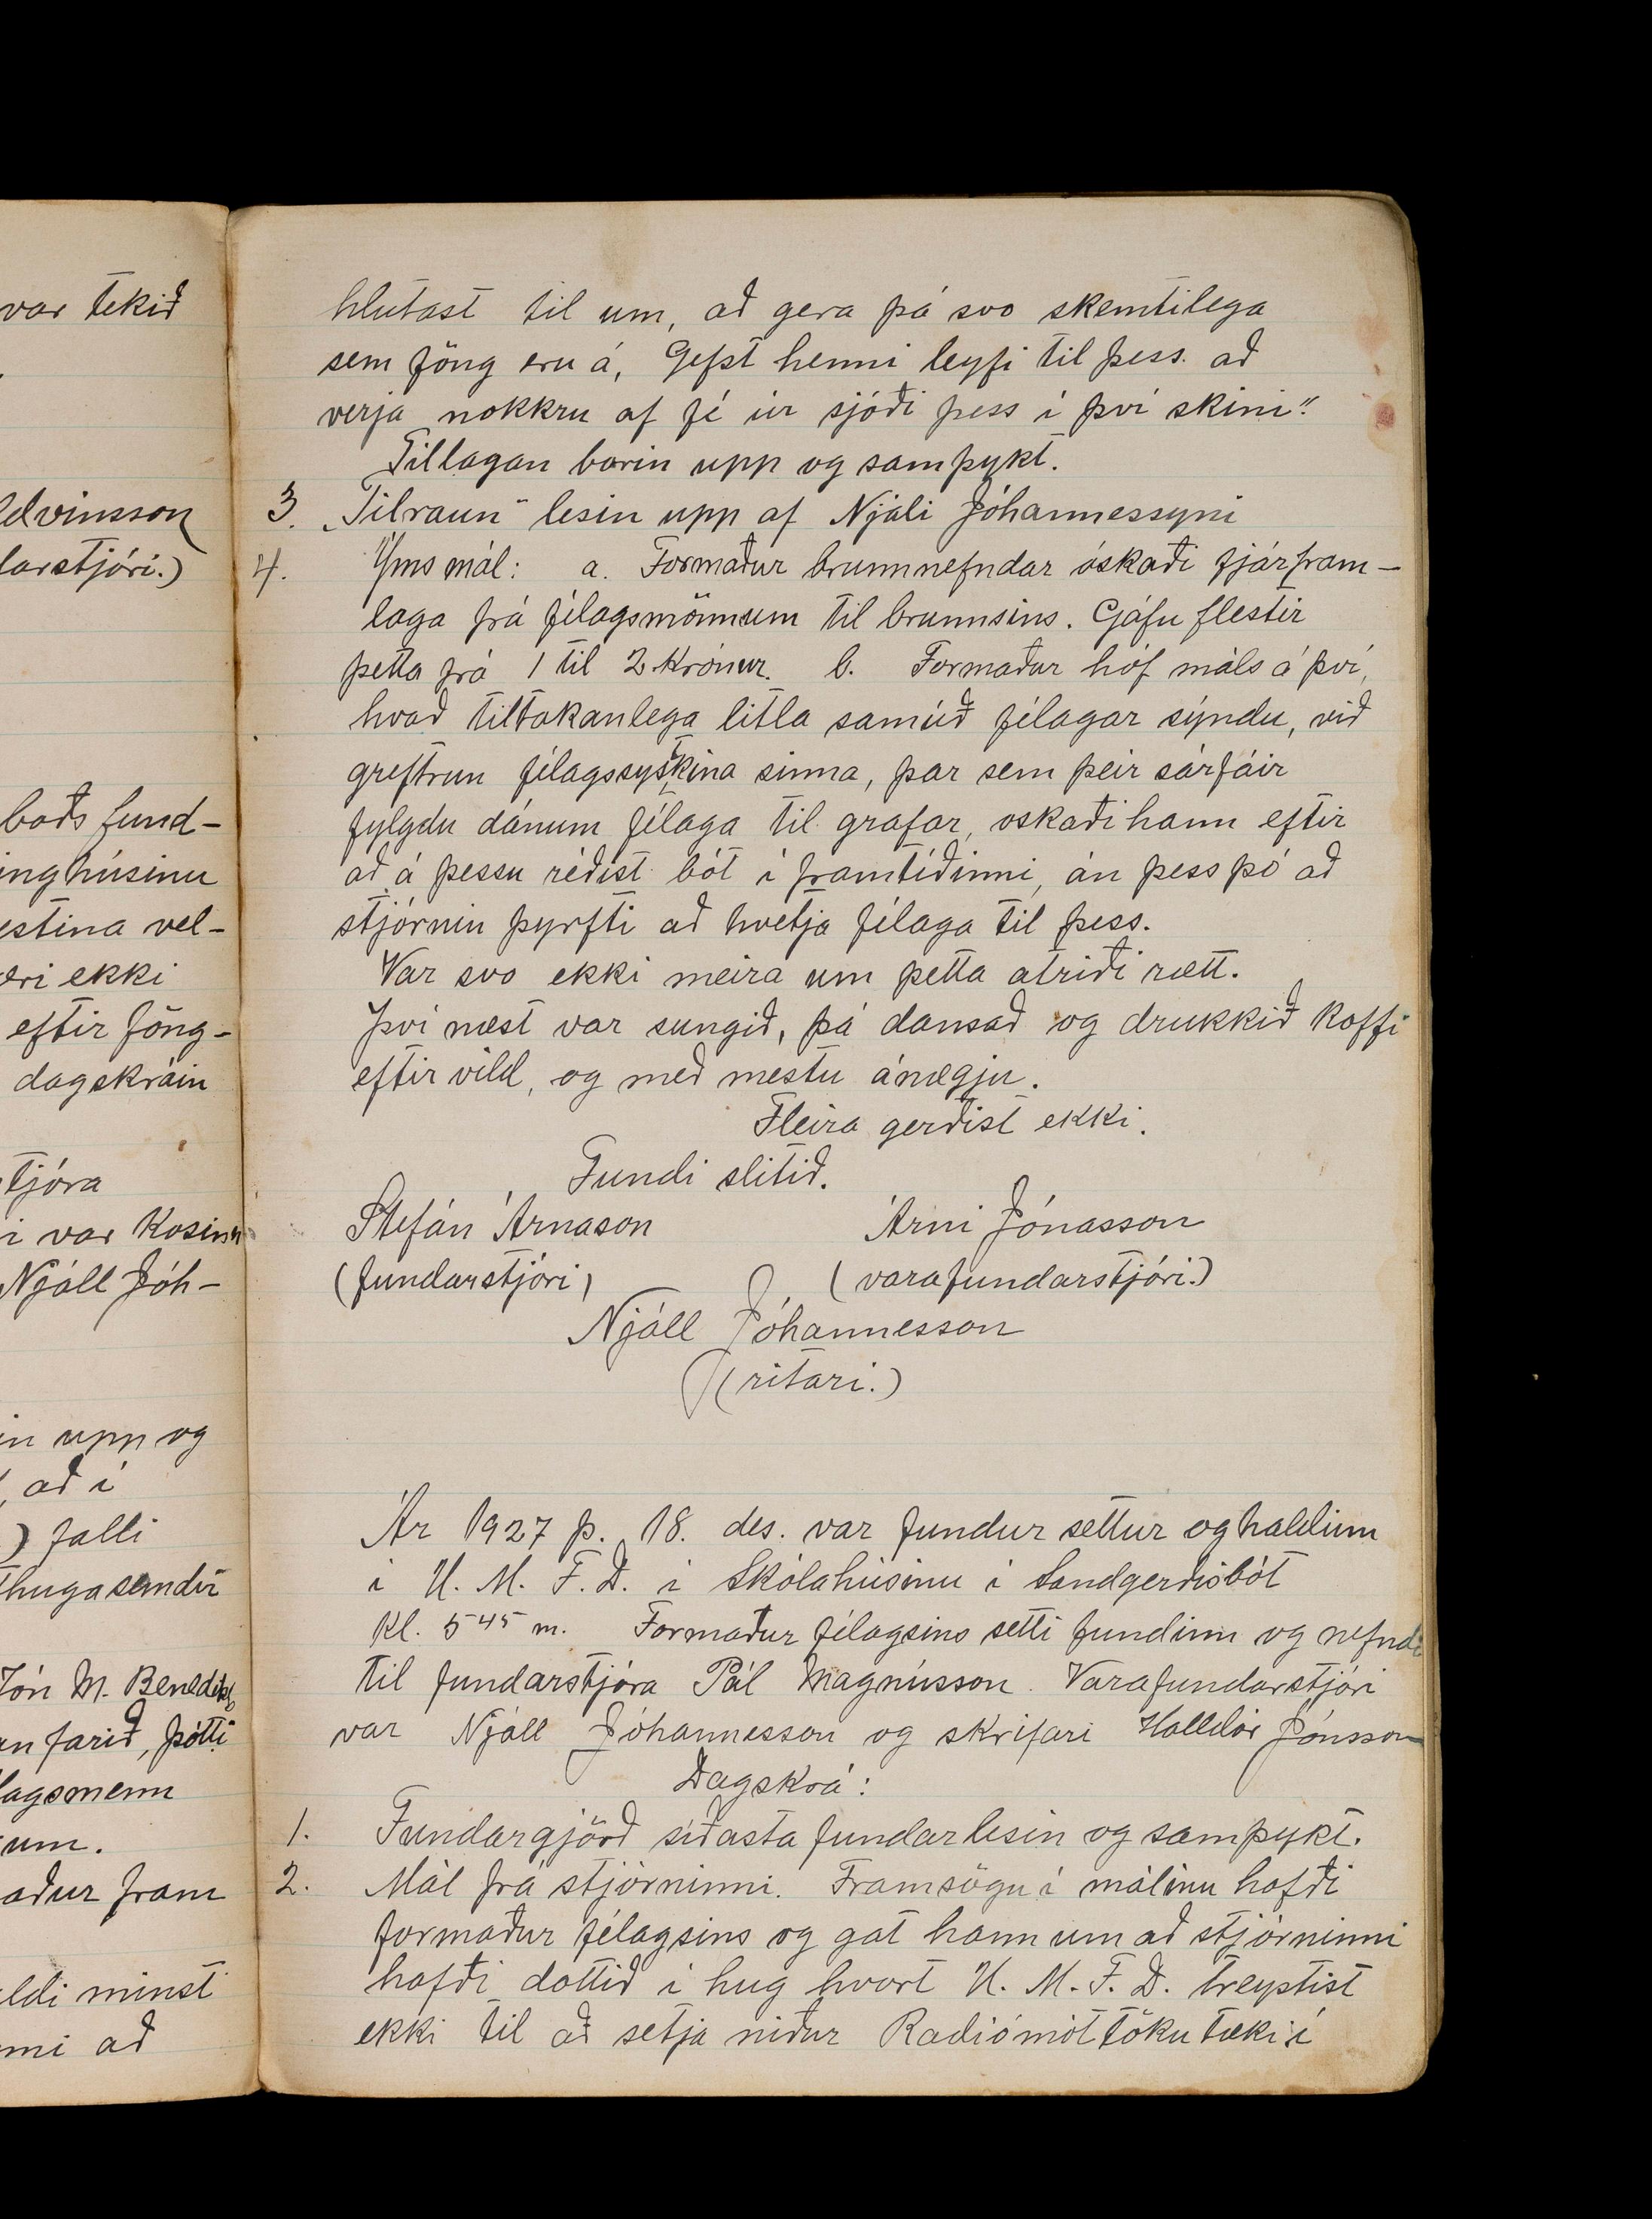 var tekið
ldvinsson
darstjóri.)
boðs fund-
inghúsinu
estina vel-
æri ekki
eftir föng-
dagskráin
tjóra
i var kosinn
Njáll Jóh-
in upp og
, að í
) falli
thugasemdir
Jón M. Benedikts
an farið, þótti
lagsmenn
um.
aður fram
ldi minst
nni að
hlutast til um, að gera þá svo skemtilega
sem föng eru á, Gefst henni leyfi til þess að
verja nokkru af fé úr sjóði þess í því skini".
Tillagan borin upp og samþykt.
3. „Tilraun" lesin upp af Njáli Jóhannessyni
4. Ýms mál: a. Formaður brunnnefndar óskaði fjárfram-
laga frá félagsmönnum til brunnsins. Gáfu flestir
þetta frá 1 til 2 krónur. b. Formaður hóf máls á því,
hvað tiltakanlega litla samúð félagar sýndu, við
greftrun félagssystkina sinna, þar sem þeir sárfáir
fylgdu dánum félaga til grafar, oskaði hann eftir
að á þessu réðist bót í framtíðinni, án þess þó að
stjórnin þyrfti að hvetja félaga til þess.
Var svo ekki meira um þetta atriði rætt.
Því næst var sungið, þá dansað og drukkið kaffi
eftir vild, og með mestu ánægju.
Fleira gerðist ekki.
Fundi slitið.
Stefán Árnason Árni Jónasson
(fundarstjóri) (varafundarstjóri.)
Njáll Jóhannesson
(ritari.)
Ár 1927 þ. 18. des. var fundur settur og haldinn
í U. M. F. D. í Skólahúsinu í Sandgerðisbót
kl. 5 45 m. Formaður félagsins setti fundinn og nefndi
til fundarstjóra Pál Magnússon. Varafundarstjóri
var Njáll Jóhannesson og skrifari Halldór Jónsson
Dagskrá:
1. Fundargjörð síðasta fundar lesin og samþykt.
2. Mál frá stjórninni. Framsögu í málinu hafði
formaður félagsins og gat hann um að stjórninni
hafði dottið í hug hvort U. M. F. D. treystist
ekki til að setja niður Radiómóttöku tæki í